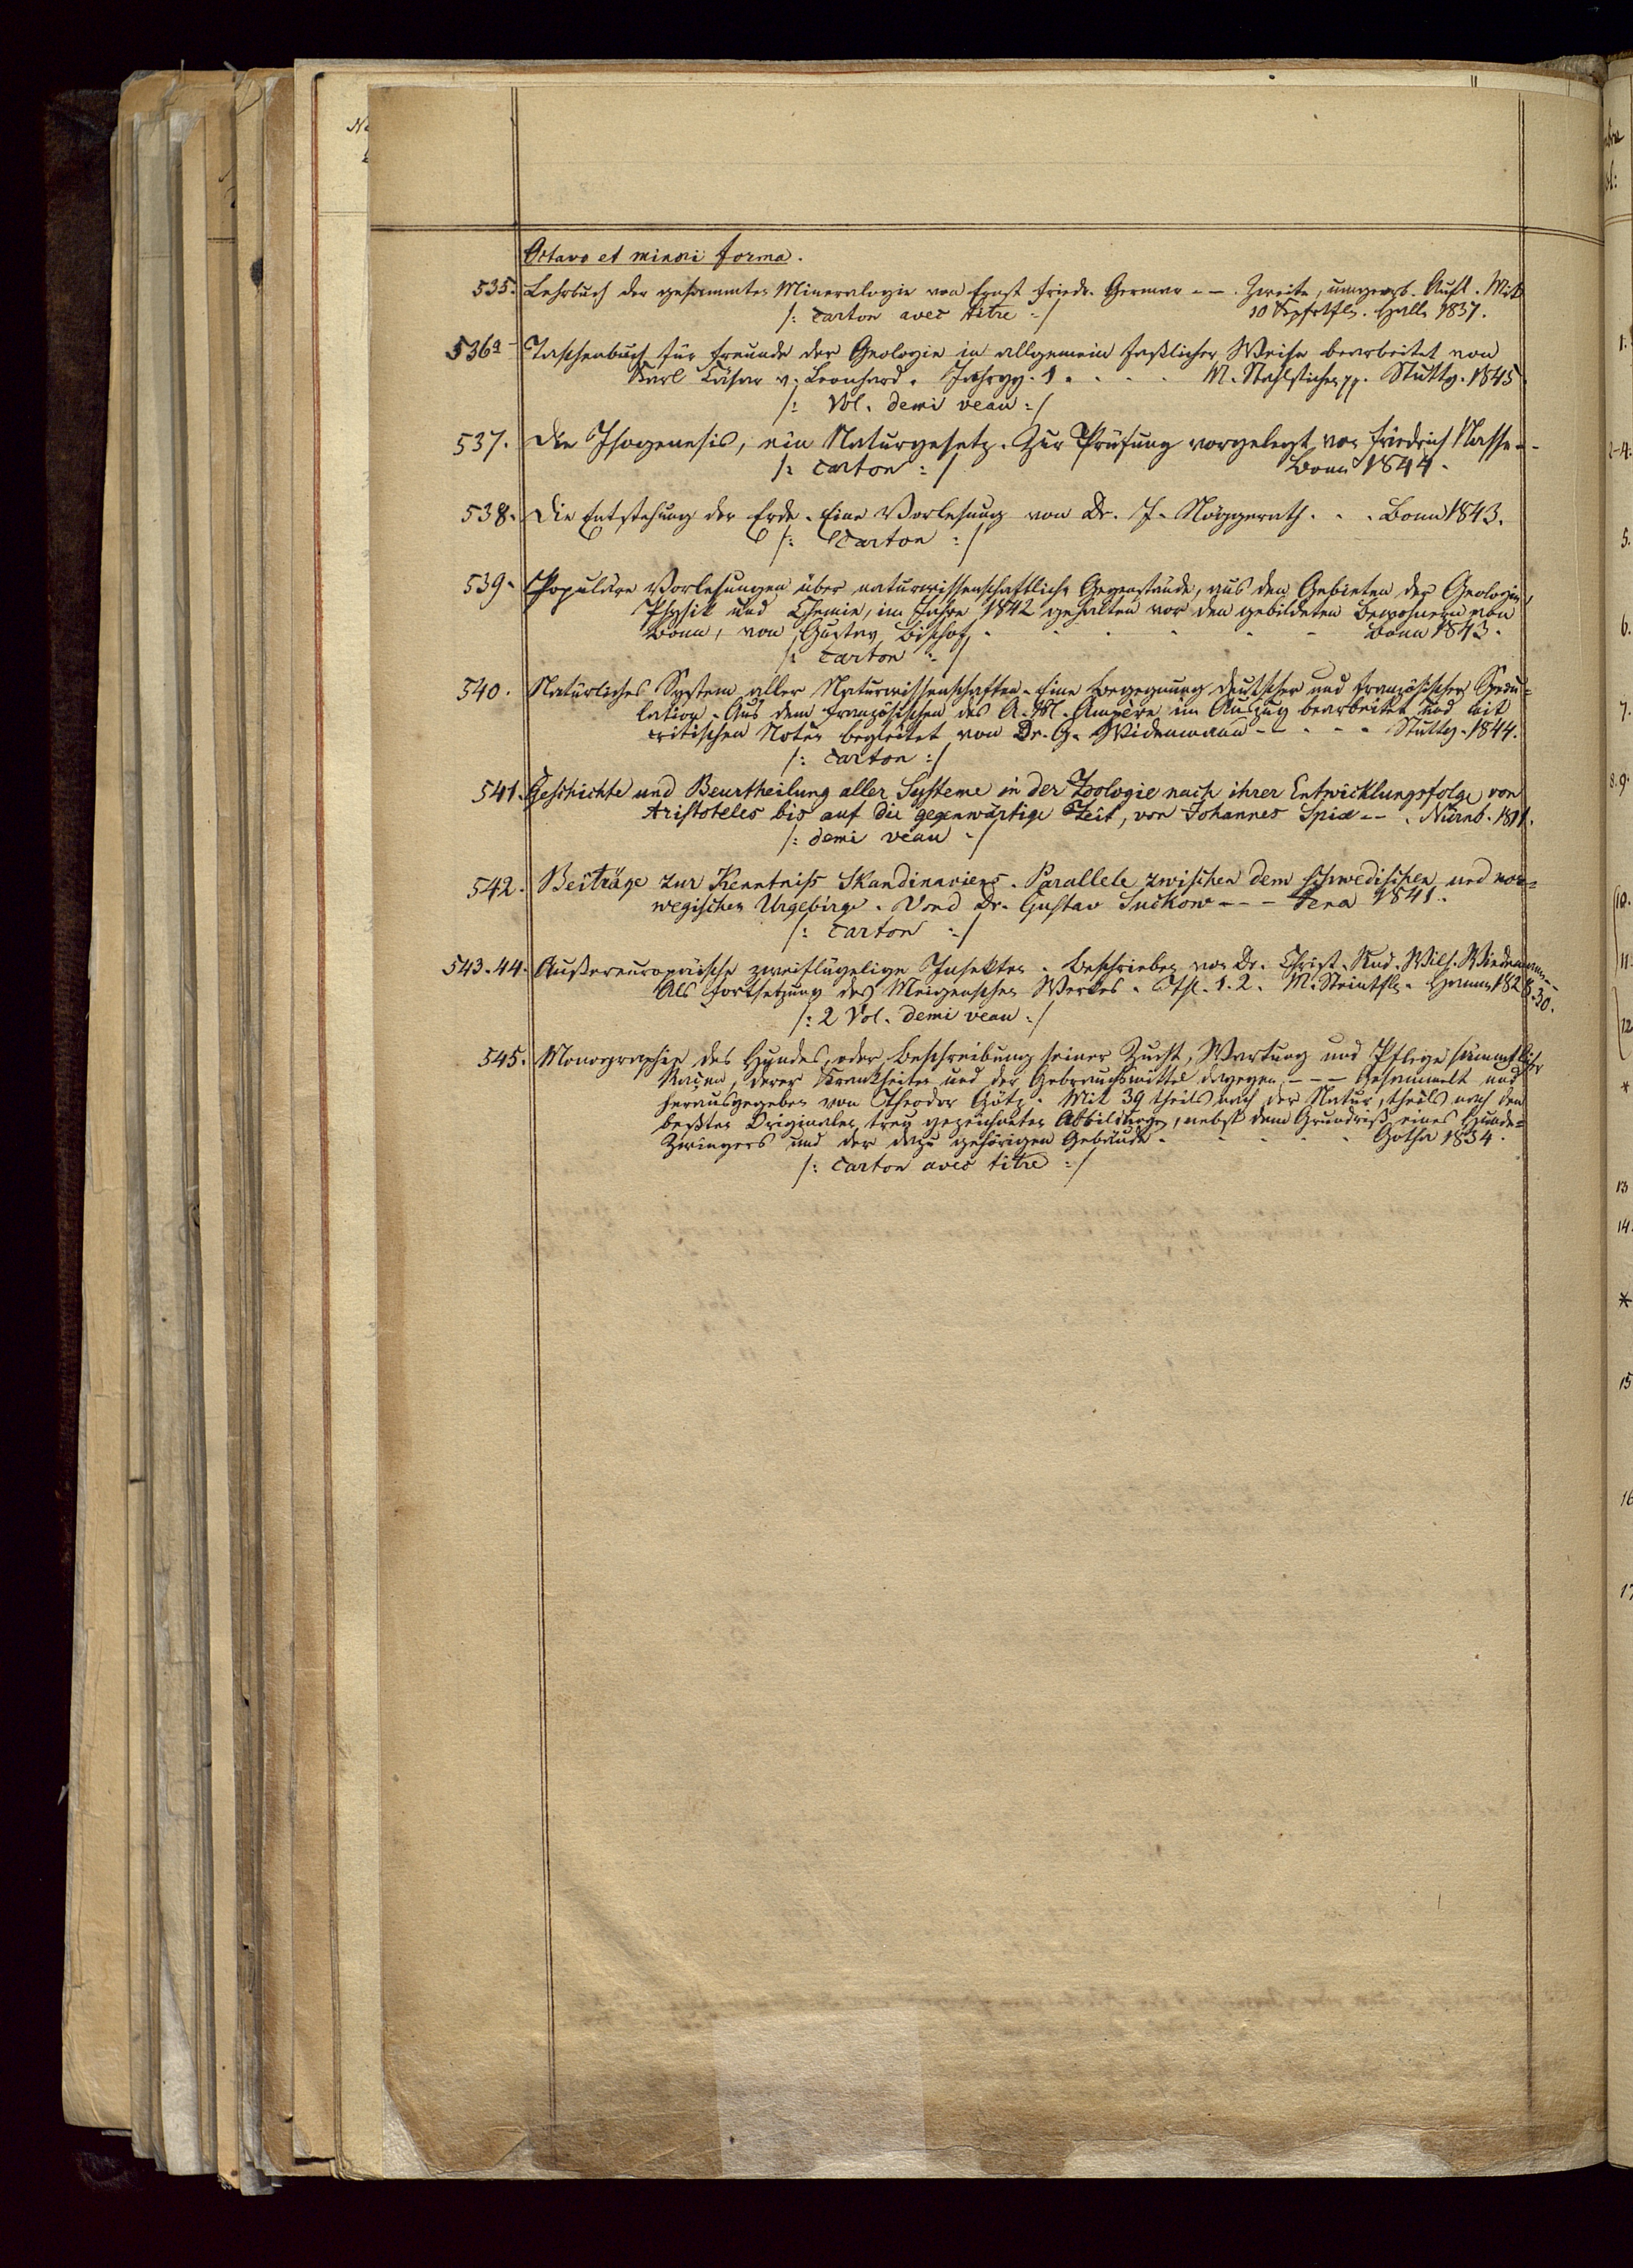 Octavo et minori forma.
535. Lehrbuch der gesammten Mineralogie von Ernst Friedr. Germar - - . Zweite, umgearb. Aufl. Mit
/: carton avec titre :/ 10 Kpfrtfln. Halle 1837.
536a Taschenbuch für Freunde der Geologie in allgemein faßlicher Weise bearbeitet von
Karl Cäsar v. Leonhard. Jahrgg. 1. . . . M. Stahlstichen pp. Stuttg. 1845
/: Vol. demi veau :/
537. Die Isogenesis, ein Naturgesetz. Zur Prüfung vorgelegt von Friedrich Nasse - -
/: carton :/ Bonn 1844.
538. Die Entstehung der Erde. Eine Vorlesung von Dr. J. Nöggerath. . . Bonn 1843.
/: Carton :/
539. Populäre Vorlesungen über naturwissenschaftliche Gegenstände, aus den Gebieten der Geologie,
Physik und Chemie, im Jahre 1842 gehalten vor den gebildeten Bewohnern von
Bonn, von Gustav Bischof. . . . . . Bonn 1843.
/: carton :/
540. Natürliches System aller Naturwissenschaften. Eine Begegnung deutscher und französischer Specu-
lation. Aus dem Französischen des A. M. Ampère im Auszug bearbeitet und mit
critischen Noten begleitet von Dr. G. Widenmann - - . . . Stuttg. 1844.
/: carton :/
541. Geschichte und Beurtheilung aller Systeme in der Zoologie nach ihrer Entwicklungsfolge von
Aristoteles bis auf die gegenwärtige Zeit, von Johannes Spix - - . Nürnb. 1811.
/: demi veau :/
542. Beiträge zur Kenntniß Skandinaviens. Parallele zwischen dem schwedischen und nor=
wegischen Urgebirge. Vond Dr. Gustav Suckow - - - Jena 1841.
/: carton :/
543-44. Außereuropäische zweiflüglige Insekten. Beschrieben von Dr. Christ. Rud. Wilh. Wiedemann - -
Als Fortsetzung des Meigenschen Werkes. Thl. 1. 2. M. Steintfln. Hamm 1828.30.
/: 2 Vol. demi veau :/
545. Monographie des Hundes, oder Beschreibung seiner Zucht, Wartung und Pflege sämmtlicher
Raçen, deren Krankheiten und der Gebrauchsmittel dagegen - - - Gesammelt und
herausgegeben von Theodor Götz. Mit 39 theils nach der Natur, theils nach den
beßten Originalen treu gezeichneten Abbildungen, nebst dem Grundriß eines Hunde=
Zwingers und der dazu gehörigen Gebäude. . . . . . Gotha 1834.
/: carton avec titre :/